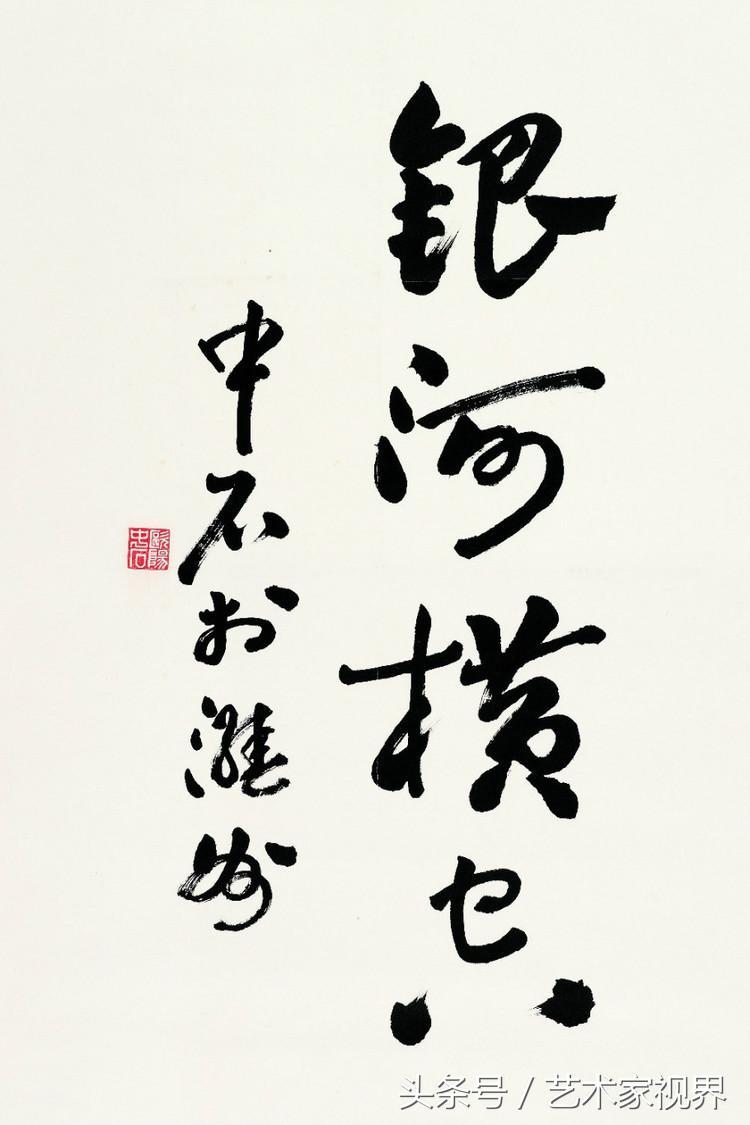 銀河橫貫
中石於濰州
歐陽中石
头条号 / 艺术家视界